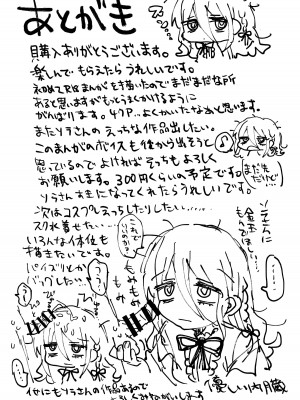 あとがき
購入ありがとうございます。
楽しんでもらえたらうれしいです。
初めてR18まんがを描いたのでまだまだな所
あると思いますがもっとうまくかけるように
がんばります。47P…よくかいたなぁと思います。
またソラさんのえっちな作品出したい。
このまんがのボイスも後から出そうと
思っているのでよければそっちもよろしく
お願いします。300円くらいの予定です。
ソラさん好きになってくれたらうれしいです。
次はコスプレえっちしたりしたい…
スク水着せたい…
いろんな人体位も
描きたいです。
パイズリとか
バックしたい…
もみもみ
もみ
優しい内臓